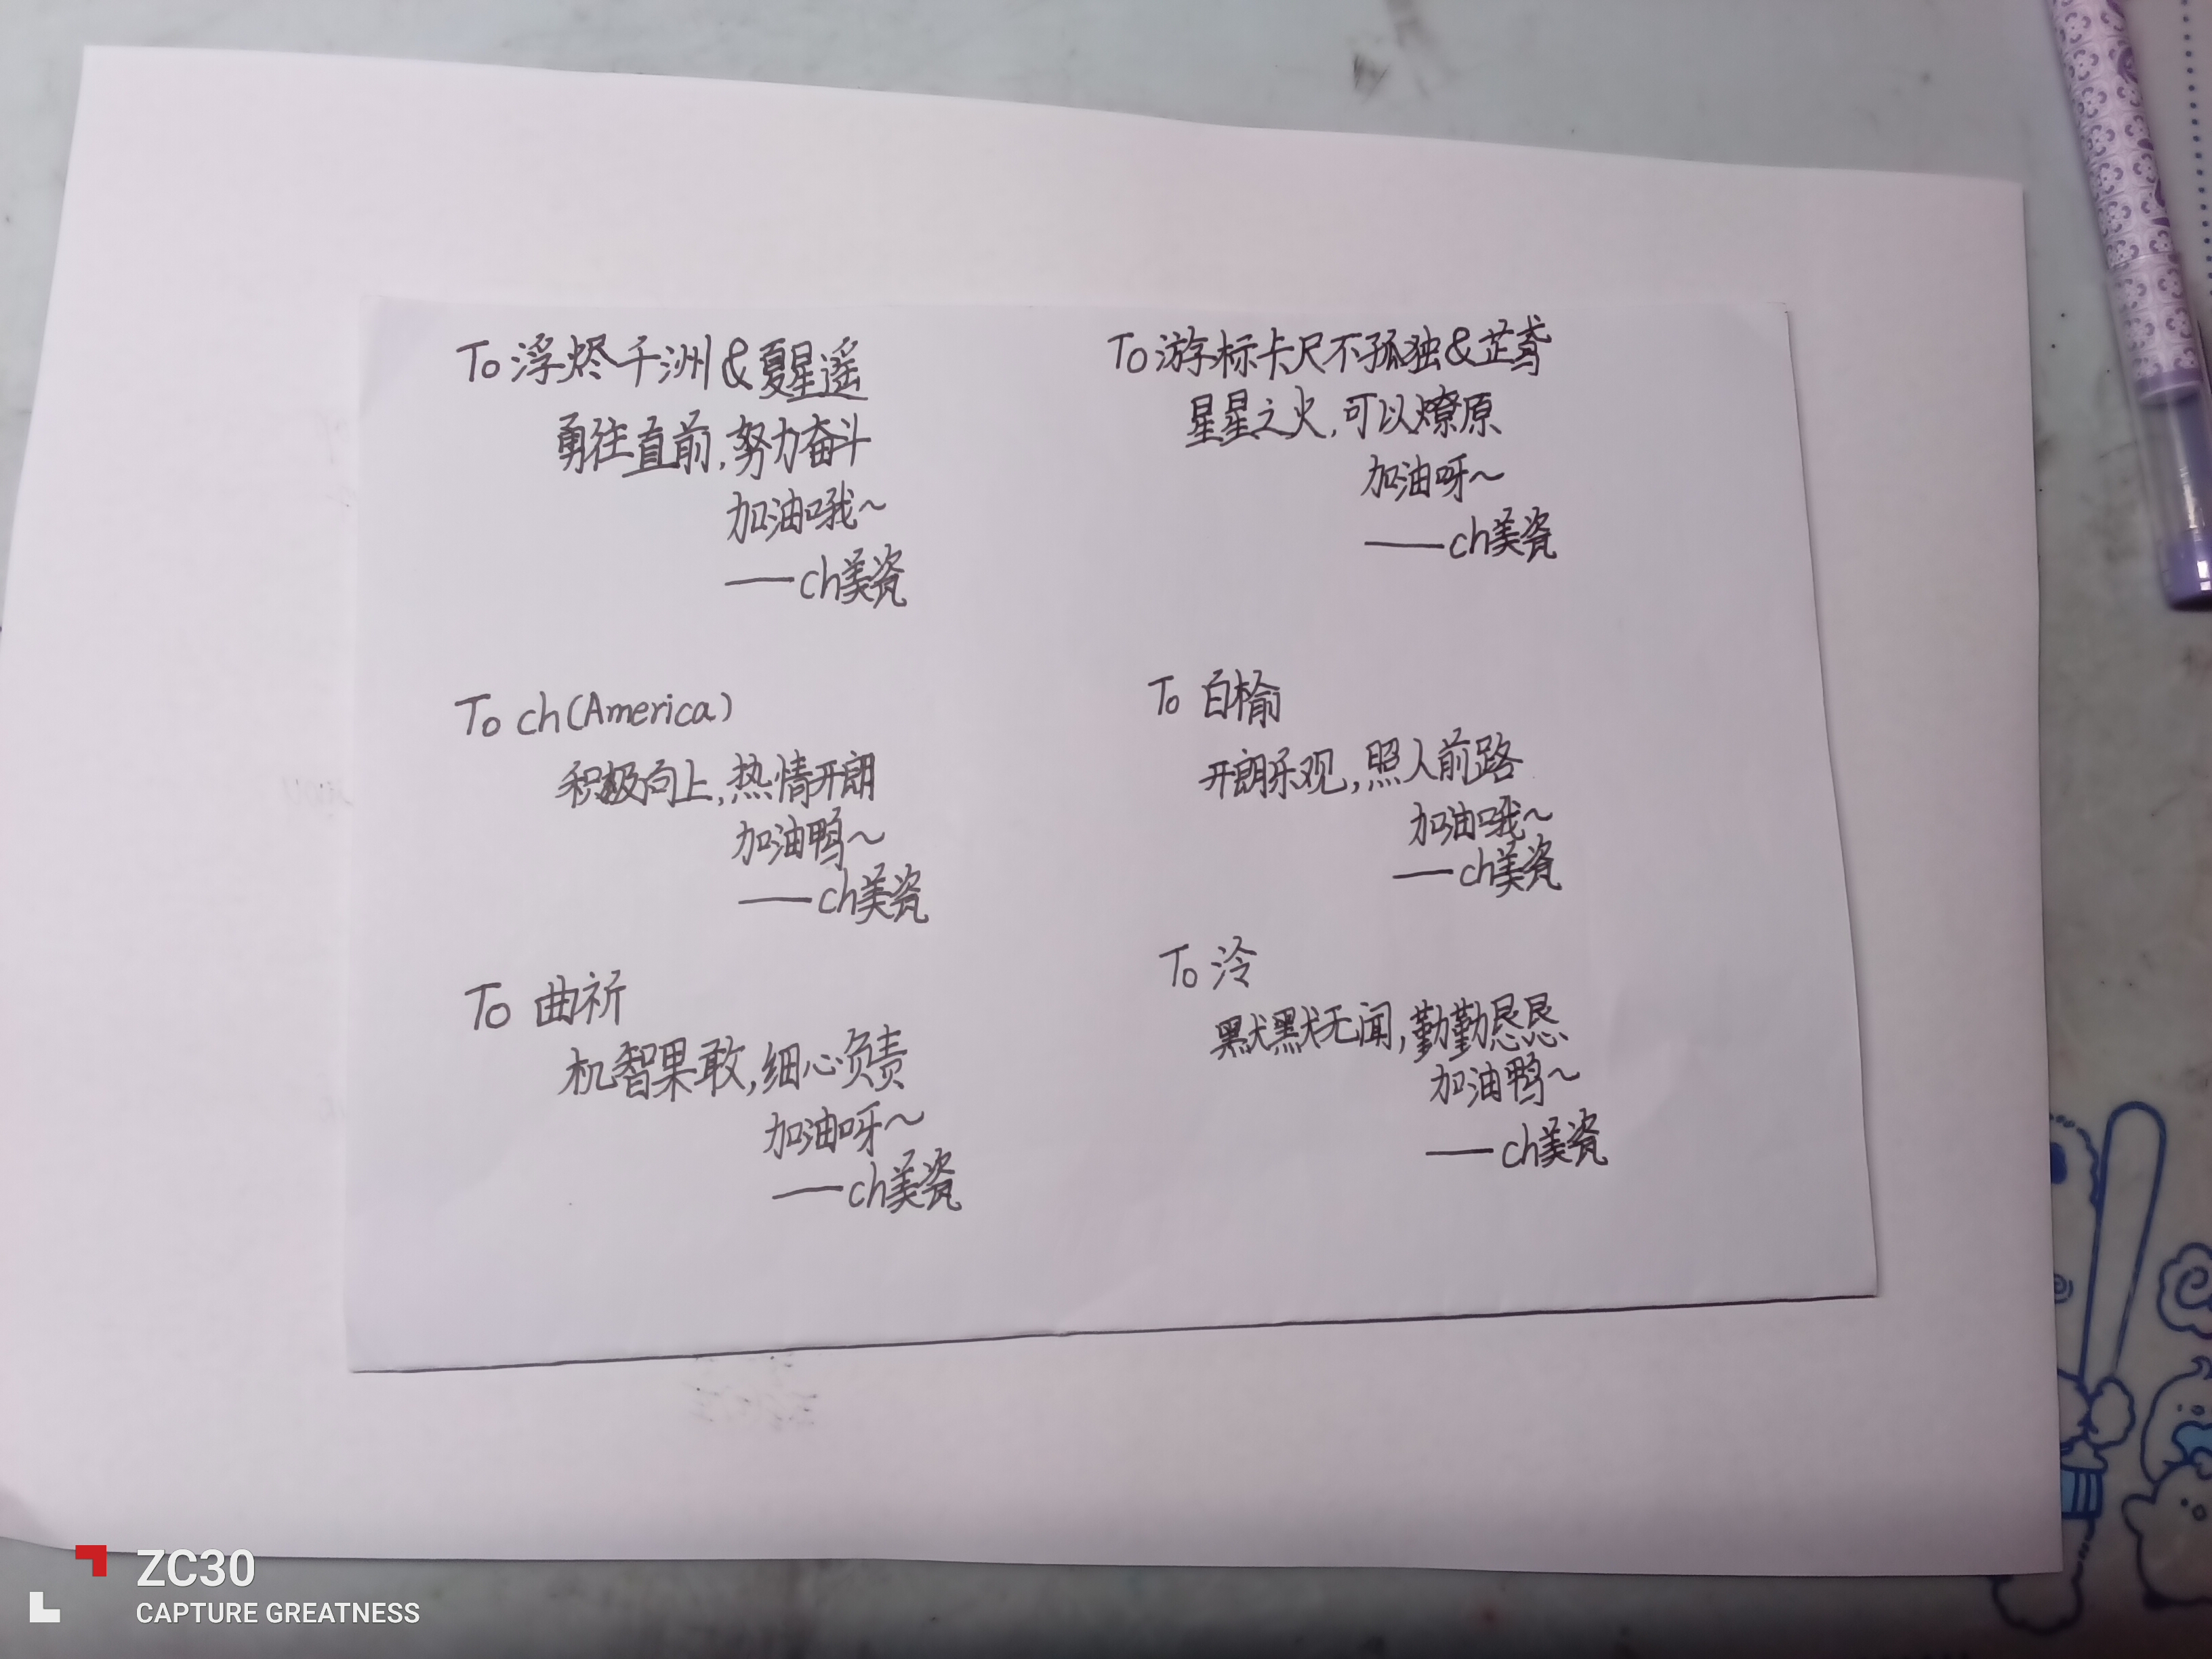 To 浮烬千洲&夏星遥
勇往直前,努力奋斗
加油哦~
——ch美瓷
To 游标卡尺不孤独&芷鸢
星星之火,可以燎原
加油呀~
——ch美瓷
To ch(America)
积极向上,热情开朗
加油鸭~
——ch美瓷
To 白榆
开朗乐观,照人前路
加油哦~
——ch美瓷
To 曲祈
机智果敢,细心负责
加油呀~
——ch美瓷
To 泠
默默无闻,勤勤恳恳
加油鸭~
——ch美瓷
ZC30
CAPTURE GREATNESS